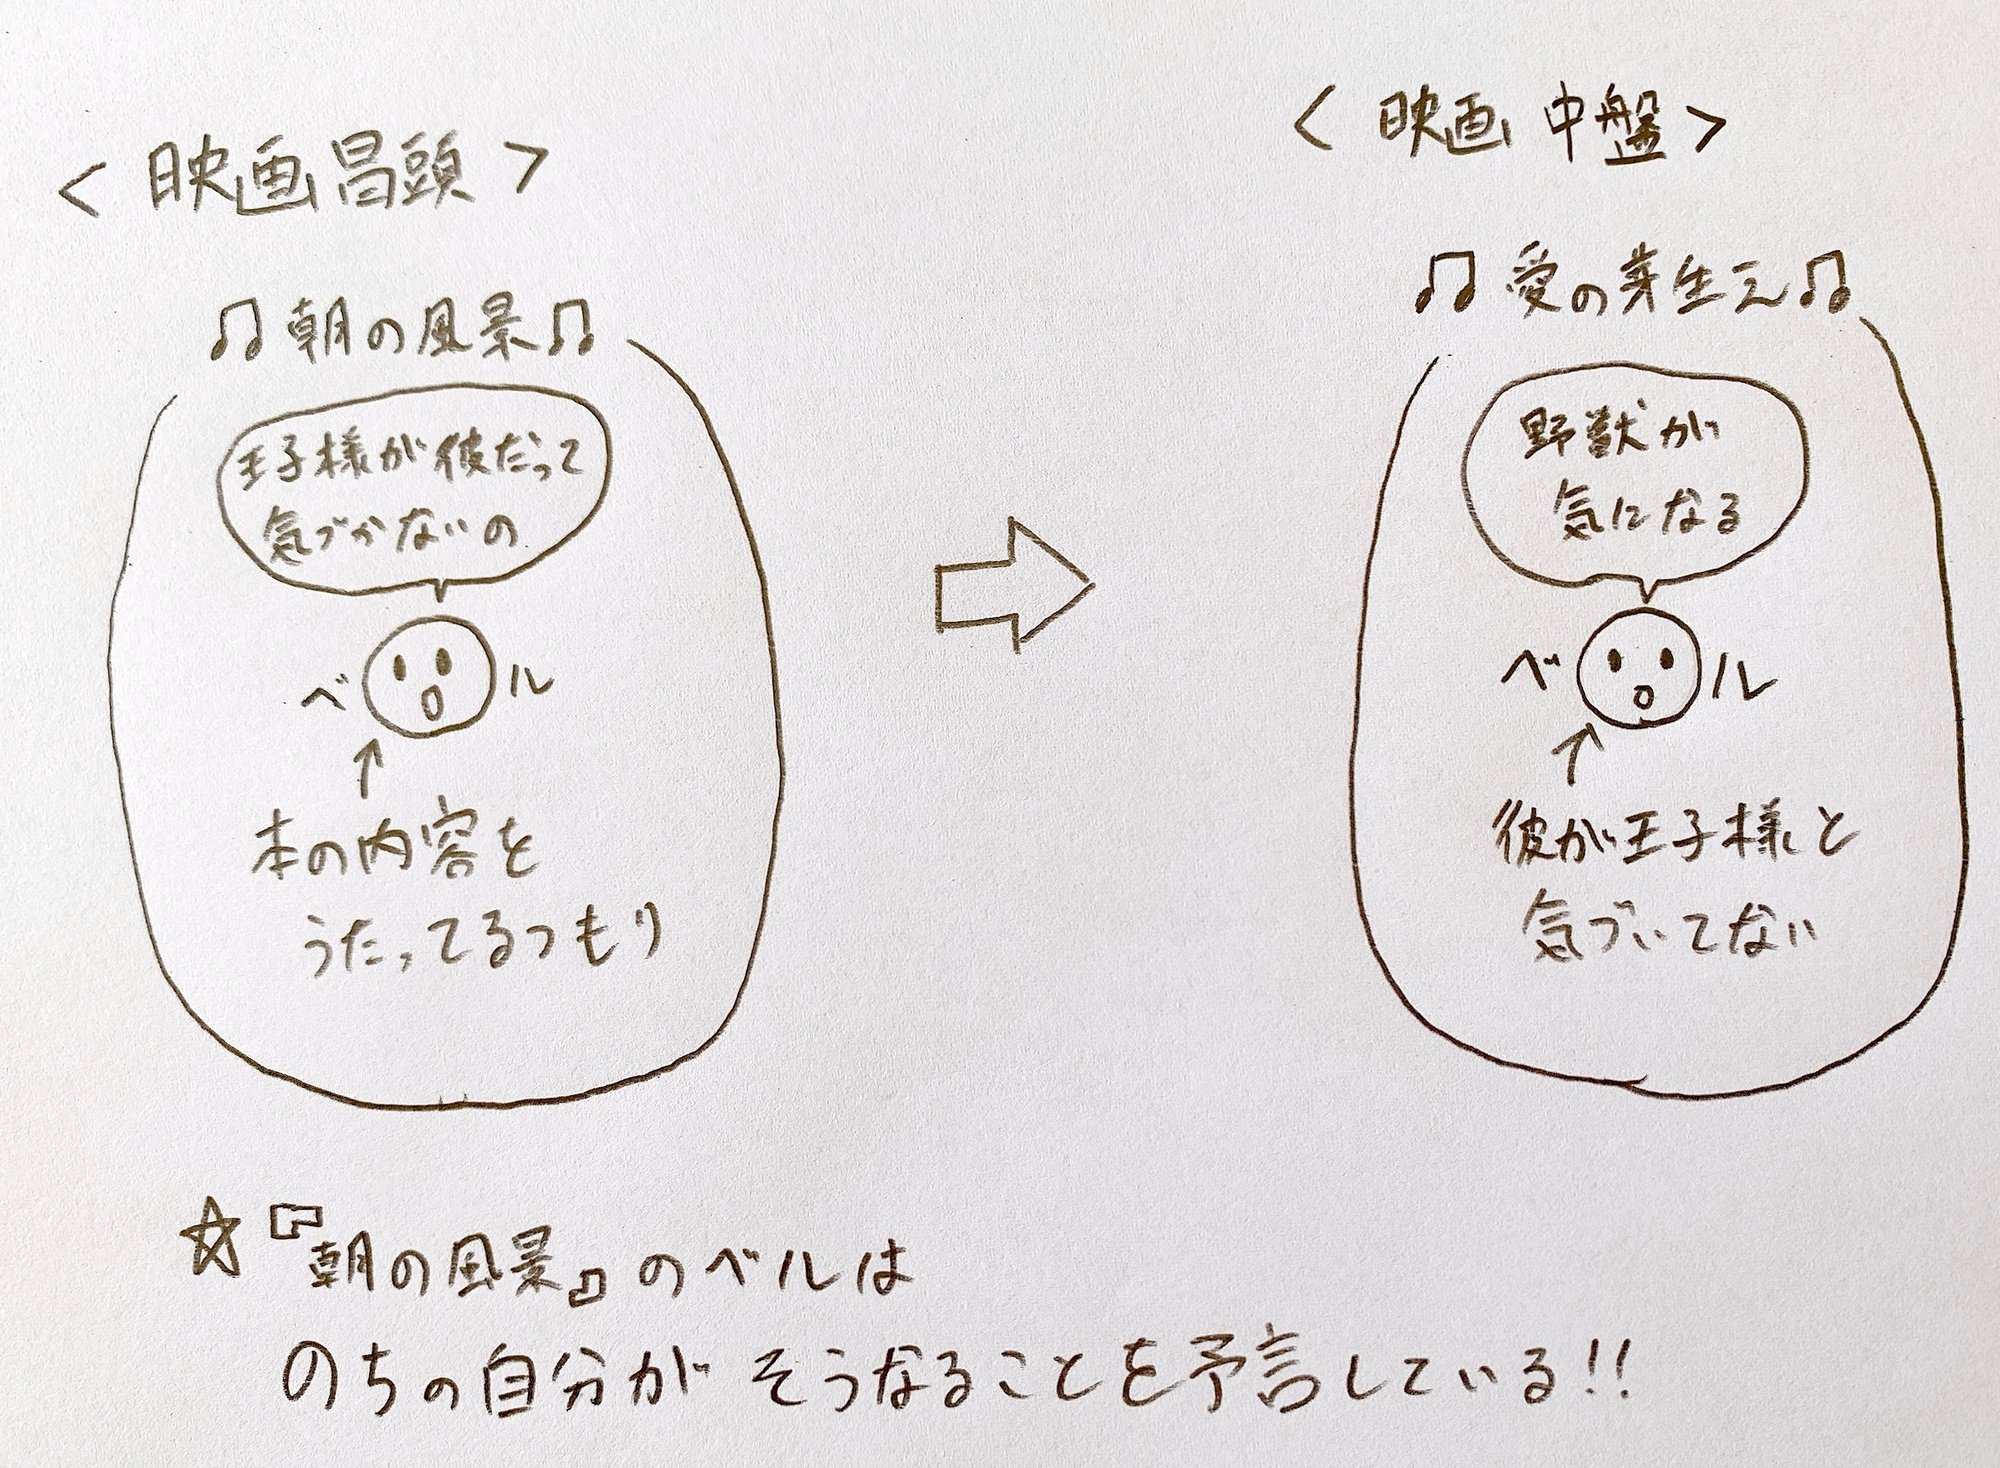 < 映画冒頭 >
♫ 朝の風景 ♫
王子様が彼だって
気づかないの
ベル
↑
本の内容を
うたってるつもり
⇨
< 映画 中盤 >
♫ 愛の芽生え ♫
野獣が
気になる
ベル
↑
彼が王子様と
気づいてない
☆『朝の風景』のベルは
のちの自分がそうなることを予言している!!